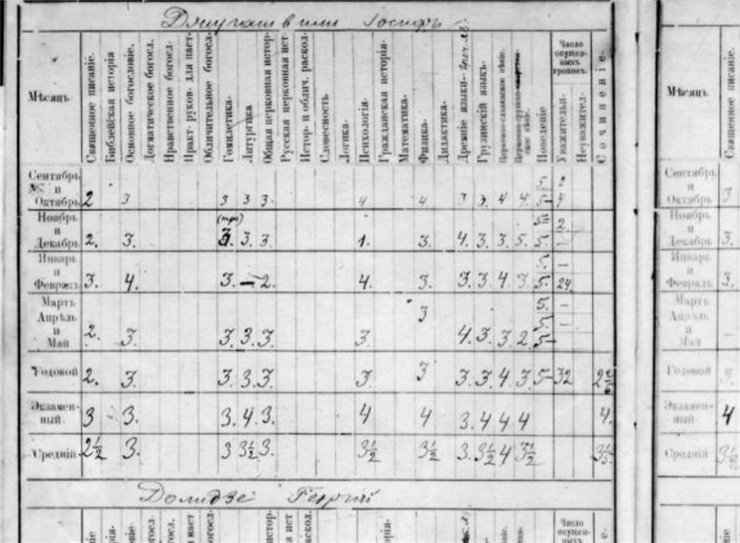 Джугашвили Іосифъ
Мѣсяцъ.
Священное писаніе.
Библейская исторія
Основное богословіе.
Догматическое богосл.
Нравственное богосл.
Практ. руков. для паст.
Обличительное богосл.
Гомилетика.
Литургика.
Общая церковная истор.
Русская церковная ист.
Истор. и облич. раскол.
Словесность
Логика.
Психологія.
Гражданская исторія.
Математика.
Физика.
Дидактика.
Древніе языки
Грузинскій языкъ.
Церковно-славянское пѣніе.
Поведеніе
Число опущенныхъ уроковъ.
Уважительн.
Неуважител.
Сочиненіе.
Сентябрь и Октябрь 2 3 3 3 3. 4 4 3 3. 4 4. 5 5 2 4
Ноябрь и Декабрь 2. 3. (тро) 3. 3. 3 1. 3. 4. 3. 3. 5. 5 5. 2. –
Январь и Февраль 3. 4. 3. – 2. 4. 3. 3. 3. 4. 3. 5. 5. – 24.
Мартъ Апрѣль и Май 2. 3. 3. 3. 3. 3. 3 4. 3. 3. 2. 5. 5. 5 – – –
Годовой 2. 3. 3. 3. 3. 3. 3 3. 3. 4 3. 5 – 32
Экзаменный. 3 3. 3. 4. 3. 4 4 3. 4 4 4 4.
Средній 2½ 3. 3 3½ 3. 3½ 3½ 3. 3½ 4 3½
Долидзе Георгій
Мѣсяцъ.
Священное писаніе.
Сентябрь и Октябрь 3
Ноябрь и Декабрь 3.
Январь и Февраль 3.
Мартъ Апрѣль и Май –
Годовой
Экзаменный. 4
Средній 3½
Число опущенныхъ